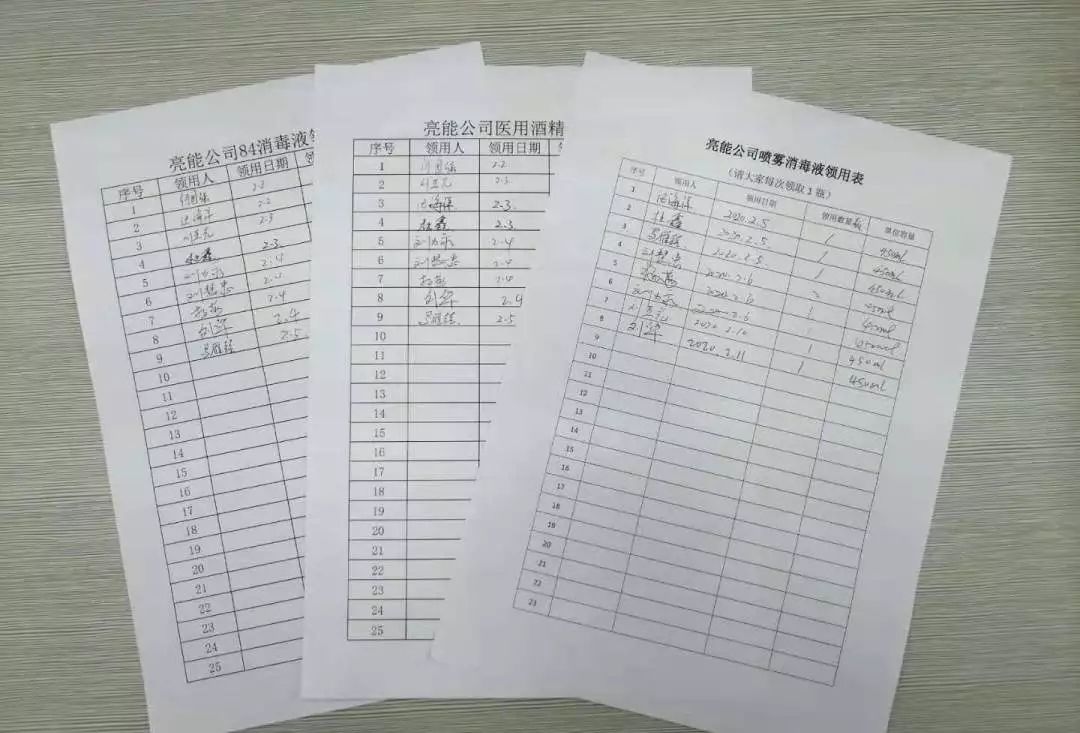 亮能公司84消毒液领
序号 领用人 领用日期
1 2-2
2 沈海洋 2-2
3 2-3
4 杜鑫 2-3
5 2-4
6 刘慧忠 2-4
7 2-4
8 刘华 2.4
9 马雁琼 2-5
10
11
12
13
14
15
16
17
18
19
20
21
22
23
24
25
亮能公司医用酒精
序号 领用人 领用日期
1 2-2
2 2-3
3 沈海洋 2-3
4 杜鑫 2.3
5 2-4
6 刘慧忠 2-4
7 2-4
8 刘华 2.4
9 马雁琼 2-5
10
11
12
13
14
15
16
17
18
19
20
21
22
23
24
25
亮能公司喷雾消毒液领用表
(请大家每次领取1瓶)
序号 领用人 领用日期 领用数量 单位容量
1 沈海洋 2020.2.5 1 450ml
2 杜鑫 2020.2.5 1 450ml
3 马雁琼 2020.2.5 1 450ml
4 刘慧忠 2020.2.6 450ml
5 2020.2.6 1 450ml
6 2020.2.6 450ml
7 2020.2.10 1 450ml
8 刘华 2020.2.11 1 450ml
9
10
11
12
13
14
15
16
17
18
19
20
21
22
23